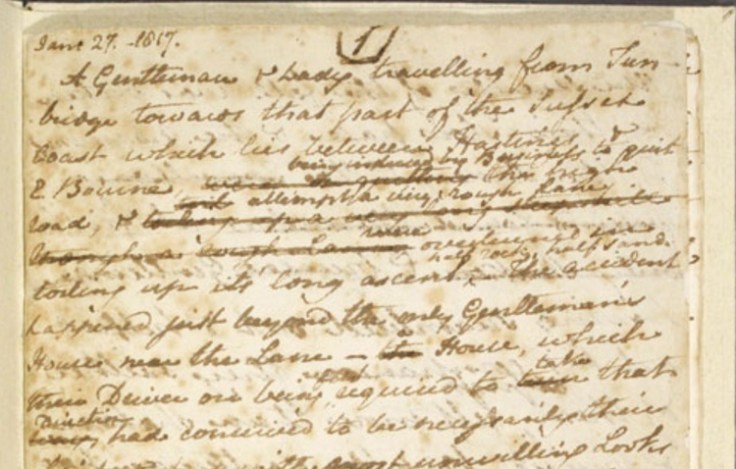 Jan: 27. -1817.
1
A Gentleman & Lady travelling from Tun-
bridge towards that part of the Sussex
Coast which lies between Hastings &
E. Bourne, being induced by Business to quit
the high
road, & attempt a very rough Lane,
were overturned in
toiling up it's long ascent half rock, half sand. - The accident
happened just beyond the only Gentleman's
House near the Lane - House, which
their Driver on being first required to take that
direction had conceived to be necessarily their
with most unwilling Looks